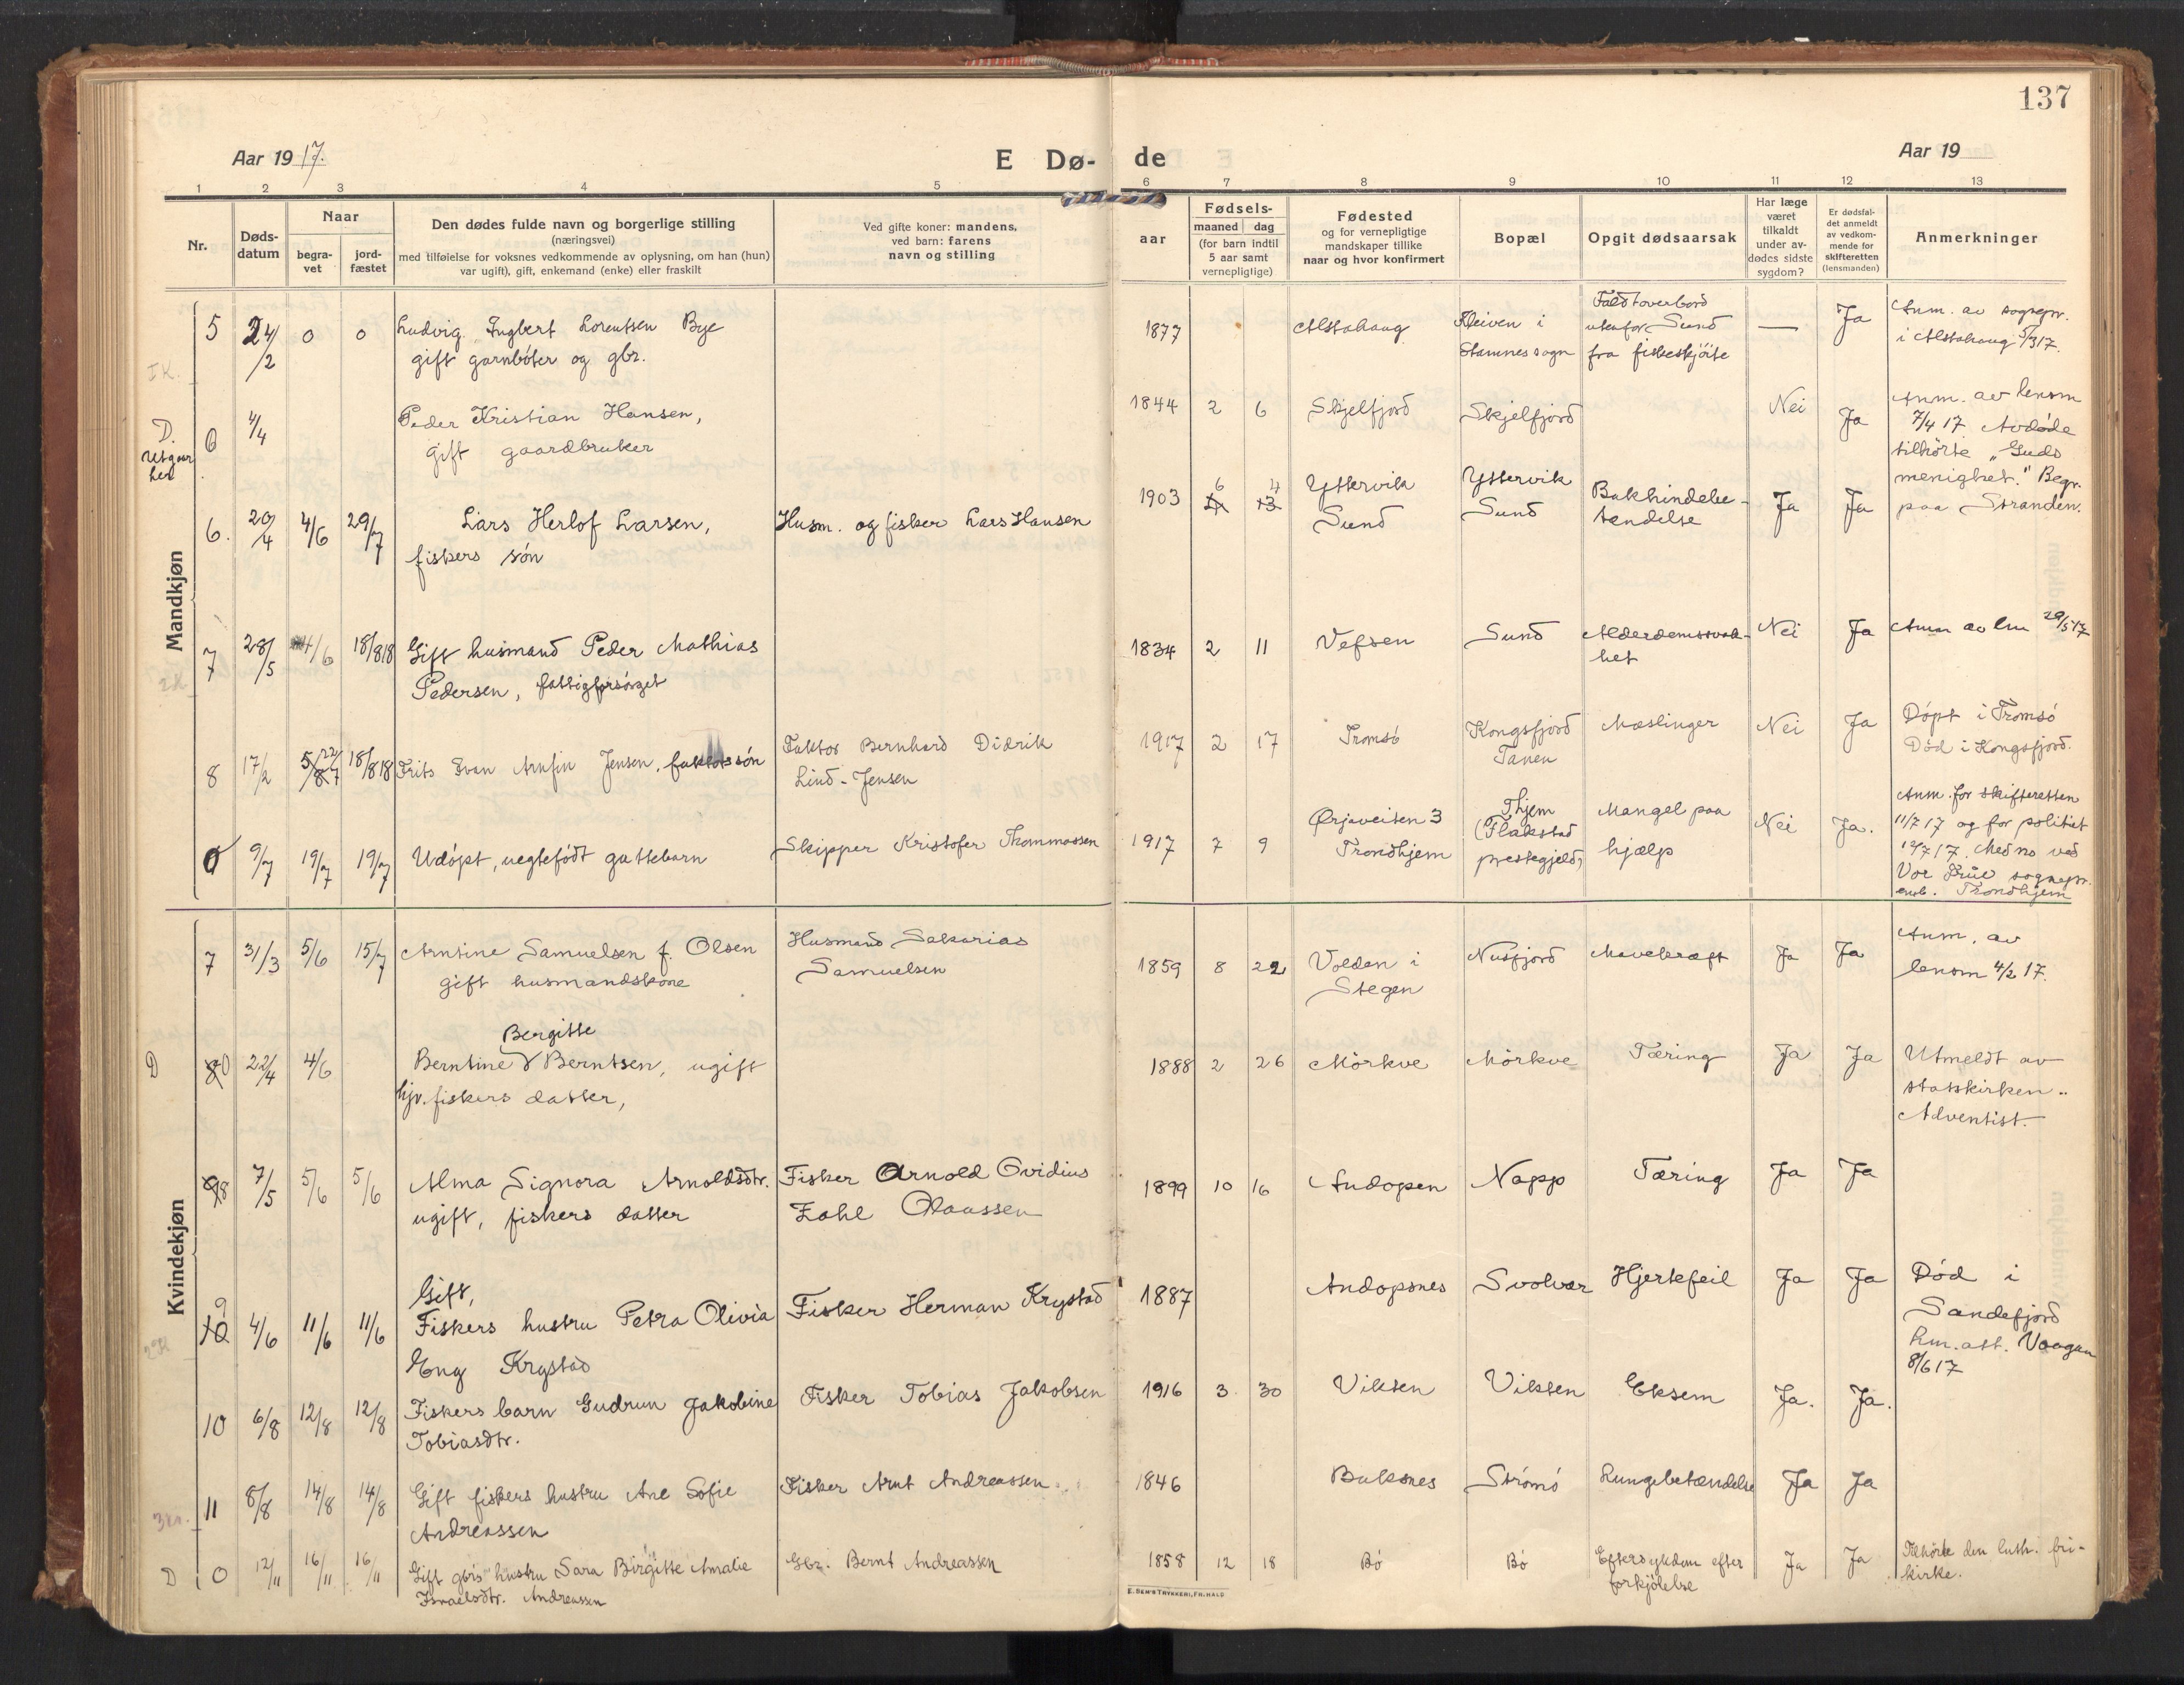 137
Aar 1917.
E Dø- de
Aar 19
1 2 3 4 5 6 7 8 9 10 11 12 13
Nr.
Døds-
datum
Naar
begra-
vet
jord-
fæstet
Den dødes fulde navn og borgerlige stilling
(næringsvei)
med tilføielse for voksnes vedkommende av oplysning, om han (hun)
var ugift), gift, enkemand (enke) eller fraskilt
Ved gifte koner: mandens,
ved barn: farens
navn og stilling
aar
Fødsels-
maaned dag
(for barn indtil
5 aar samt
vernepligtige)
Fødested
og for vernepligtige
mandskaper tillike
naar og hvor konfirmert
Bopæl
Opgit dødsaarsak
Har læge
været
tilkaldt
under av-
dødes sidste
sygdom?
Er dødsfal-
det anmeldt
av vedkom-
mende for
skifteretten
(lensmanden)
Anmerkninger
Mandkjøn
5 24/2 0 0 Ludvig Ingbert Lorentsen Bye
gift garnbøter og gbr.
1877 Alstahaug Kleiven i
Stamnes sogn
Faldt overbord
utenfor Sund
fra fiskeskjöite
— Ja
Anm. av sognepr.
i Alstahaug 5/317.
D.
Utgaar
her
6 4/4 Peder Kristian Hansen,
gift gaardbruker
1844 2 6 Skjelfjord Skjelfjord Nei Ja
Anm. av lensm
7/4 17 Avdøde
tilhörte „Guds
menighet." Begr.
paa Stranden.
6. 20/4 4/6 29/7 Lars Herlof Larsen,
fiskers sön
Husm. og fisker Lars Hansen
1903 6 4 Yttervik
Sund
Yttervik
Sund
Bukhindebe-
tændelse
Ja Ja
7 28/5 4/6 18/818 Gift husmand Peder Mathias
Pedersen, fattigforsörget
1834 2 11 Vefsen Sund Alderdomssvak-
het
Nei Ja Anm av lm 29/517
8 17/2 5/8 22/7 18/818 Frits Ivan Arnfin Jensen, faktors sön
Faktor Bernhard Didrik
Lind-Jensen
1917 2 17 Tromsö Kongsfjord
Tanen
Mæslinger Nei Ja
Döpt i Tromsö
Död i Kongsfjord.
0 9/7 19/7 19/7 Udöpt, uegtefödt guttebarn
Skipper Kristofer Thommassen
1917 7 9 Ørjaveiten 3
Trondhjem
Thjem
(Flakstad
prestegjeld)
Mangel paa
hjælp
Nei Ja.
Anm. for skifteretten
11/7 17 og for politiet
12/7 17. Med no ved
Vor Frue sognepr.
emb. Trondhjem
Kvindekjøn
7 31/3 5/6 15/7 Arntine Samuelsen f. Olsen
gift husmandskone
Husmand Sakarias
Samuelsen
1859 8 22 Volden i
Stegen
Nusfjord Mavekræft Ja Ja
Anm. av
lensm 4/2 17.
D 22/4 4/6 Bergitte
Berntine Berntsen, ugift
hjv. fiskers datter,
1888 2 26 Mörkve Mörkve Tæring Ja Ja
Utmeldt av
statskirken..
Adventist.
8 7/5 5/6 5/6 Alma Signora Arnoldsdtr.
ugift, fiskers datter
Fisker Arnold Ovidius
Zahl Olaussen
1899 10 16 Andopen Napp Tæring Ja Ja
9
10 4/6 11/6 11/6 Gift,
Fiskers hustru Petra Olivia
Eng Krystad
Fisker Herman Krystad
1887 Andopsnes Svolvær Hjertefeil Ja Ja
Död i
Sandefjord
lm. att. Vaagan
8/617
10 6/8 12/8 12/8 Fiskers barn Gudrun Jakobine
Tobiasdtr.
Fisker Tobias Jakobsen
1916 3 30 Vikten Vikten Eksem Ja. Ja.
11 8/8 14/8 14/8 Gift fiskers hustru Ane Sofie
Andreassen
Fisker Arnt Andreassen
1846 Buksnes Strömö Lungebetændelse Ja Ja
D 0 12/11 16/11 16/11 Gift gbrs hustru Sara Birgitte Amalie
Israelsdtr. Andreassen
Gbr. Bernt Andreassen
1858 12 18 Bö Bö Eftersykdom efter
forkjölelse
Ja Ja
Tilhörte den luth. fri-
kirke.
E. SEM'S TRYKKERI, FR.HALD